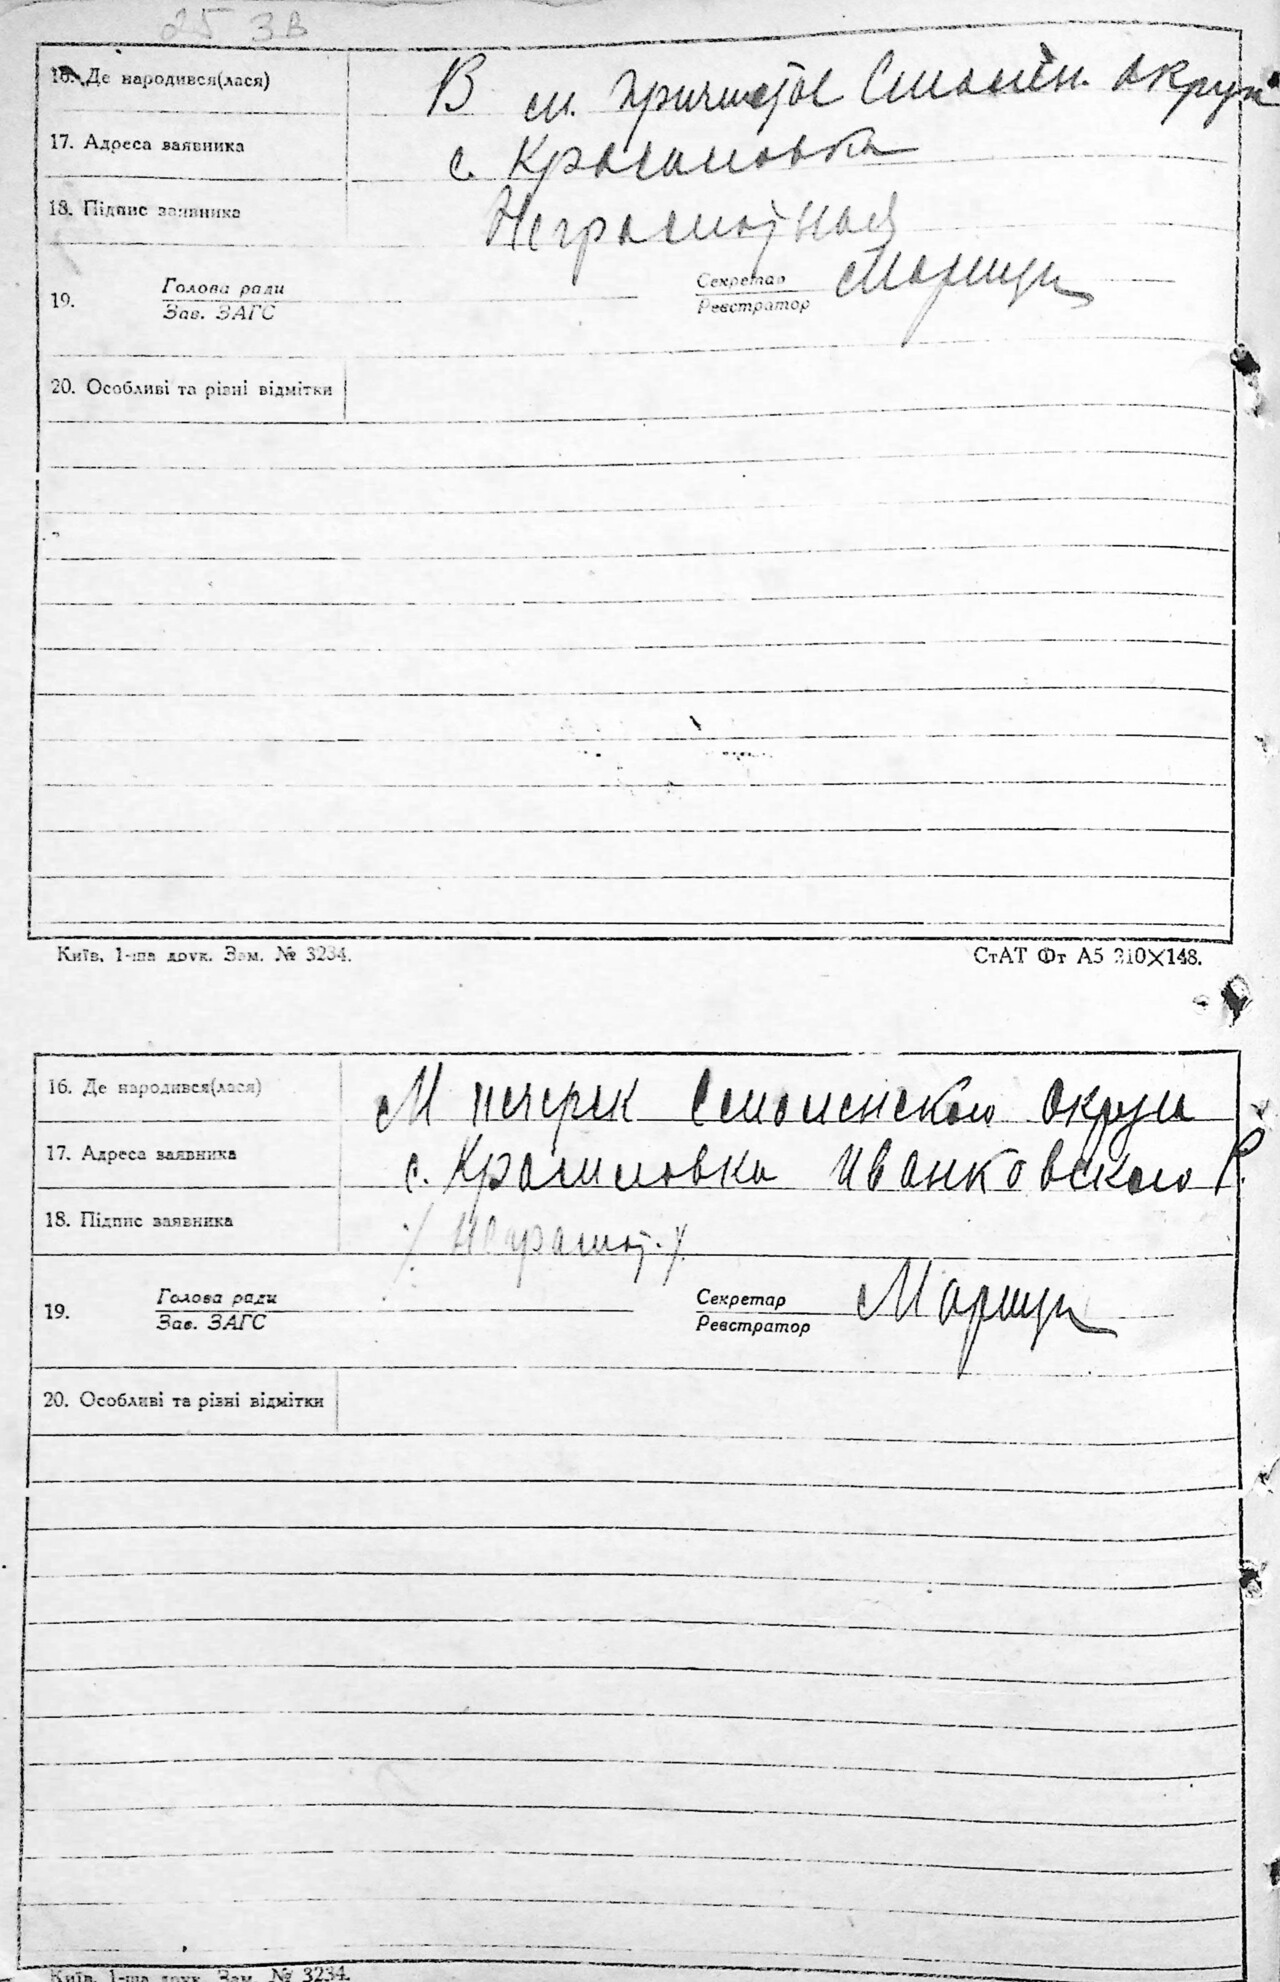 25 зв
16. Де народився(лася) В м. Причистое Смолен. округ
17. Адреса заявника с. Красиловка
18. Підпис заявника Неграмотная
Голова ради Секретар
19. Зав. ЗАГС Реєстратор
20. Особливі та різні відмітки
Київ, 1-ша друк. Зам. № 3234. СтАТ Фт А5 210×148.
16. Де народився(лася) М Смоленского округа
17. Адреса заявника с. Красиловка Иванковского Р.
18. Підпис заявника /Неграмот./
Голова ради Секретар
19. Зав. ЗАГС Реєстратор
20. Особливі та різні відмітки
Київ, 1-ша друк. Зам. № 3234.